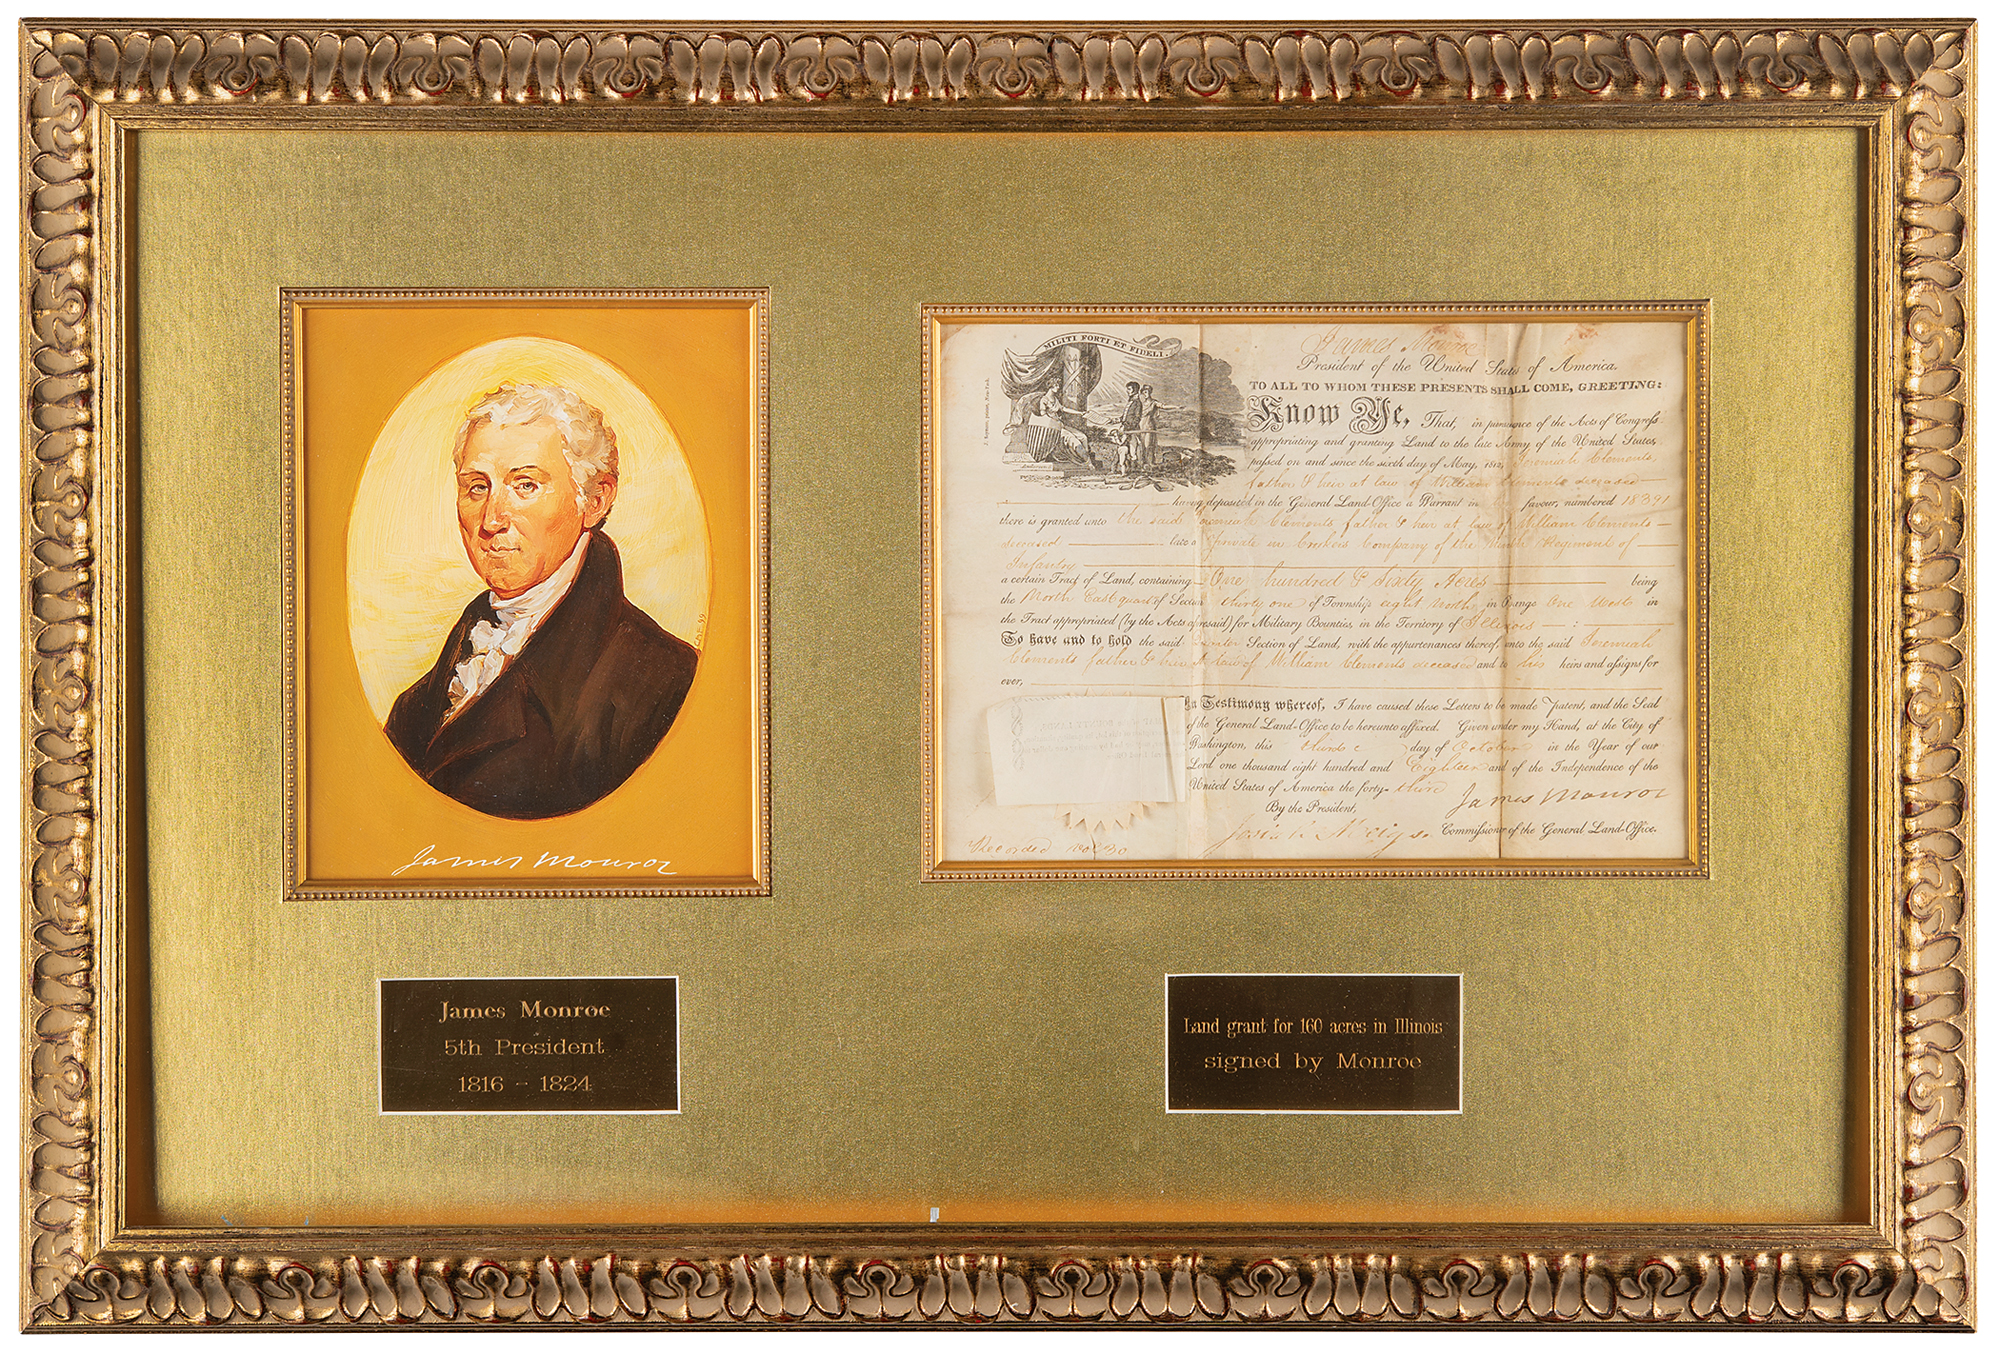 James Monroe
James Monroe
5th President
1816 - 1824
MILITI FORTI ET FIDELI.
James Monroe
President of the United States of America.
TO ALL TO WHOM THESE PRESENTS SHALL COME, GREETING:
Know Ye, That, in pursuance of the Acts of Congreſs
appropriating and granting Land to the late Army of the United States,
paſsed on and since the sixth day of May, 1812, Jeremiah Clements,
father & heir at law of William Clements deceased
having deposited in the General Land-Office a Warrant in his favour, numbered 18391
there is granted unto the said Jeremiah Clements father & heir at law of William Clements
deceased late a private in Crokers Company of the Ninth Regiment of
Infantry
a certain Tract of Land, containing One hundred & Sixty Acres being
the North East quarter of Section thirty one of Township eight North, in Range One West in
the Tract appropriated (by the Acts aforesaid) for Military Bounties, in the Territory of Illinois
To have and to hold the said quarter Section of Land, with the appurtenances thereof, unto the said Jeremiah
Clements father & heir at law of William Clements deceased and to his heirs and aſsigns for
ever,
In Testimony whereof, I have caused these Letters to be made Patent, and the Seal
of the General Land-Office to be hereunto affixed. Given under my Hand, at the City of
Washington, this third day of October in the Year of our
Lord one thousand eight hundred and Eighteen and of the Independence of the
United States of America the forty-third
James Monroe
By the President,
Josiah Meigs Commiſsioner of the General Land-Office.
Recorded vol 30
Land grant for 160 acres in Illinois
signed by Monroe